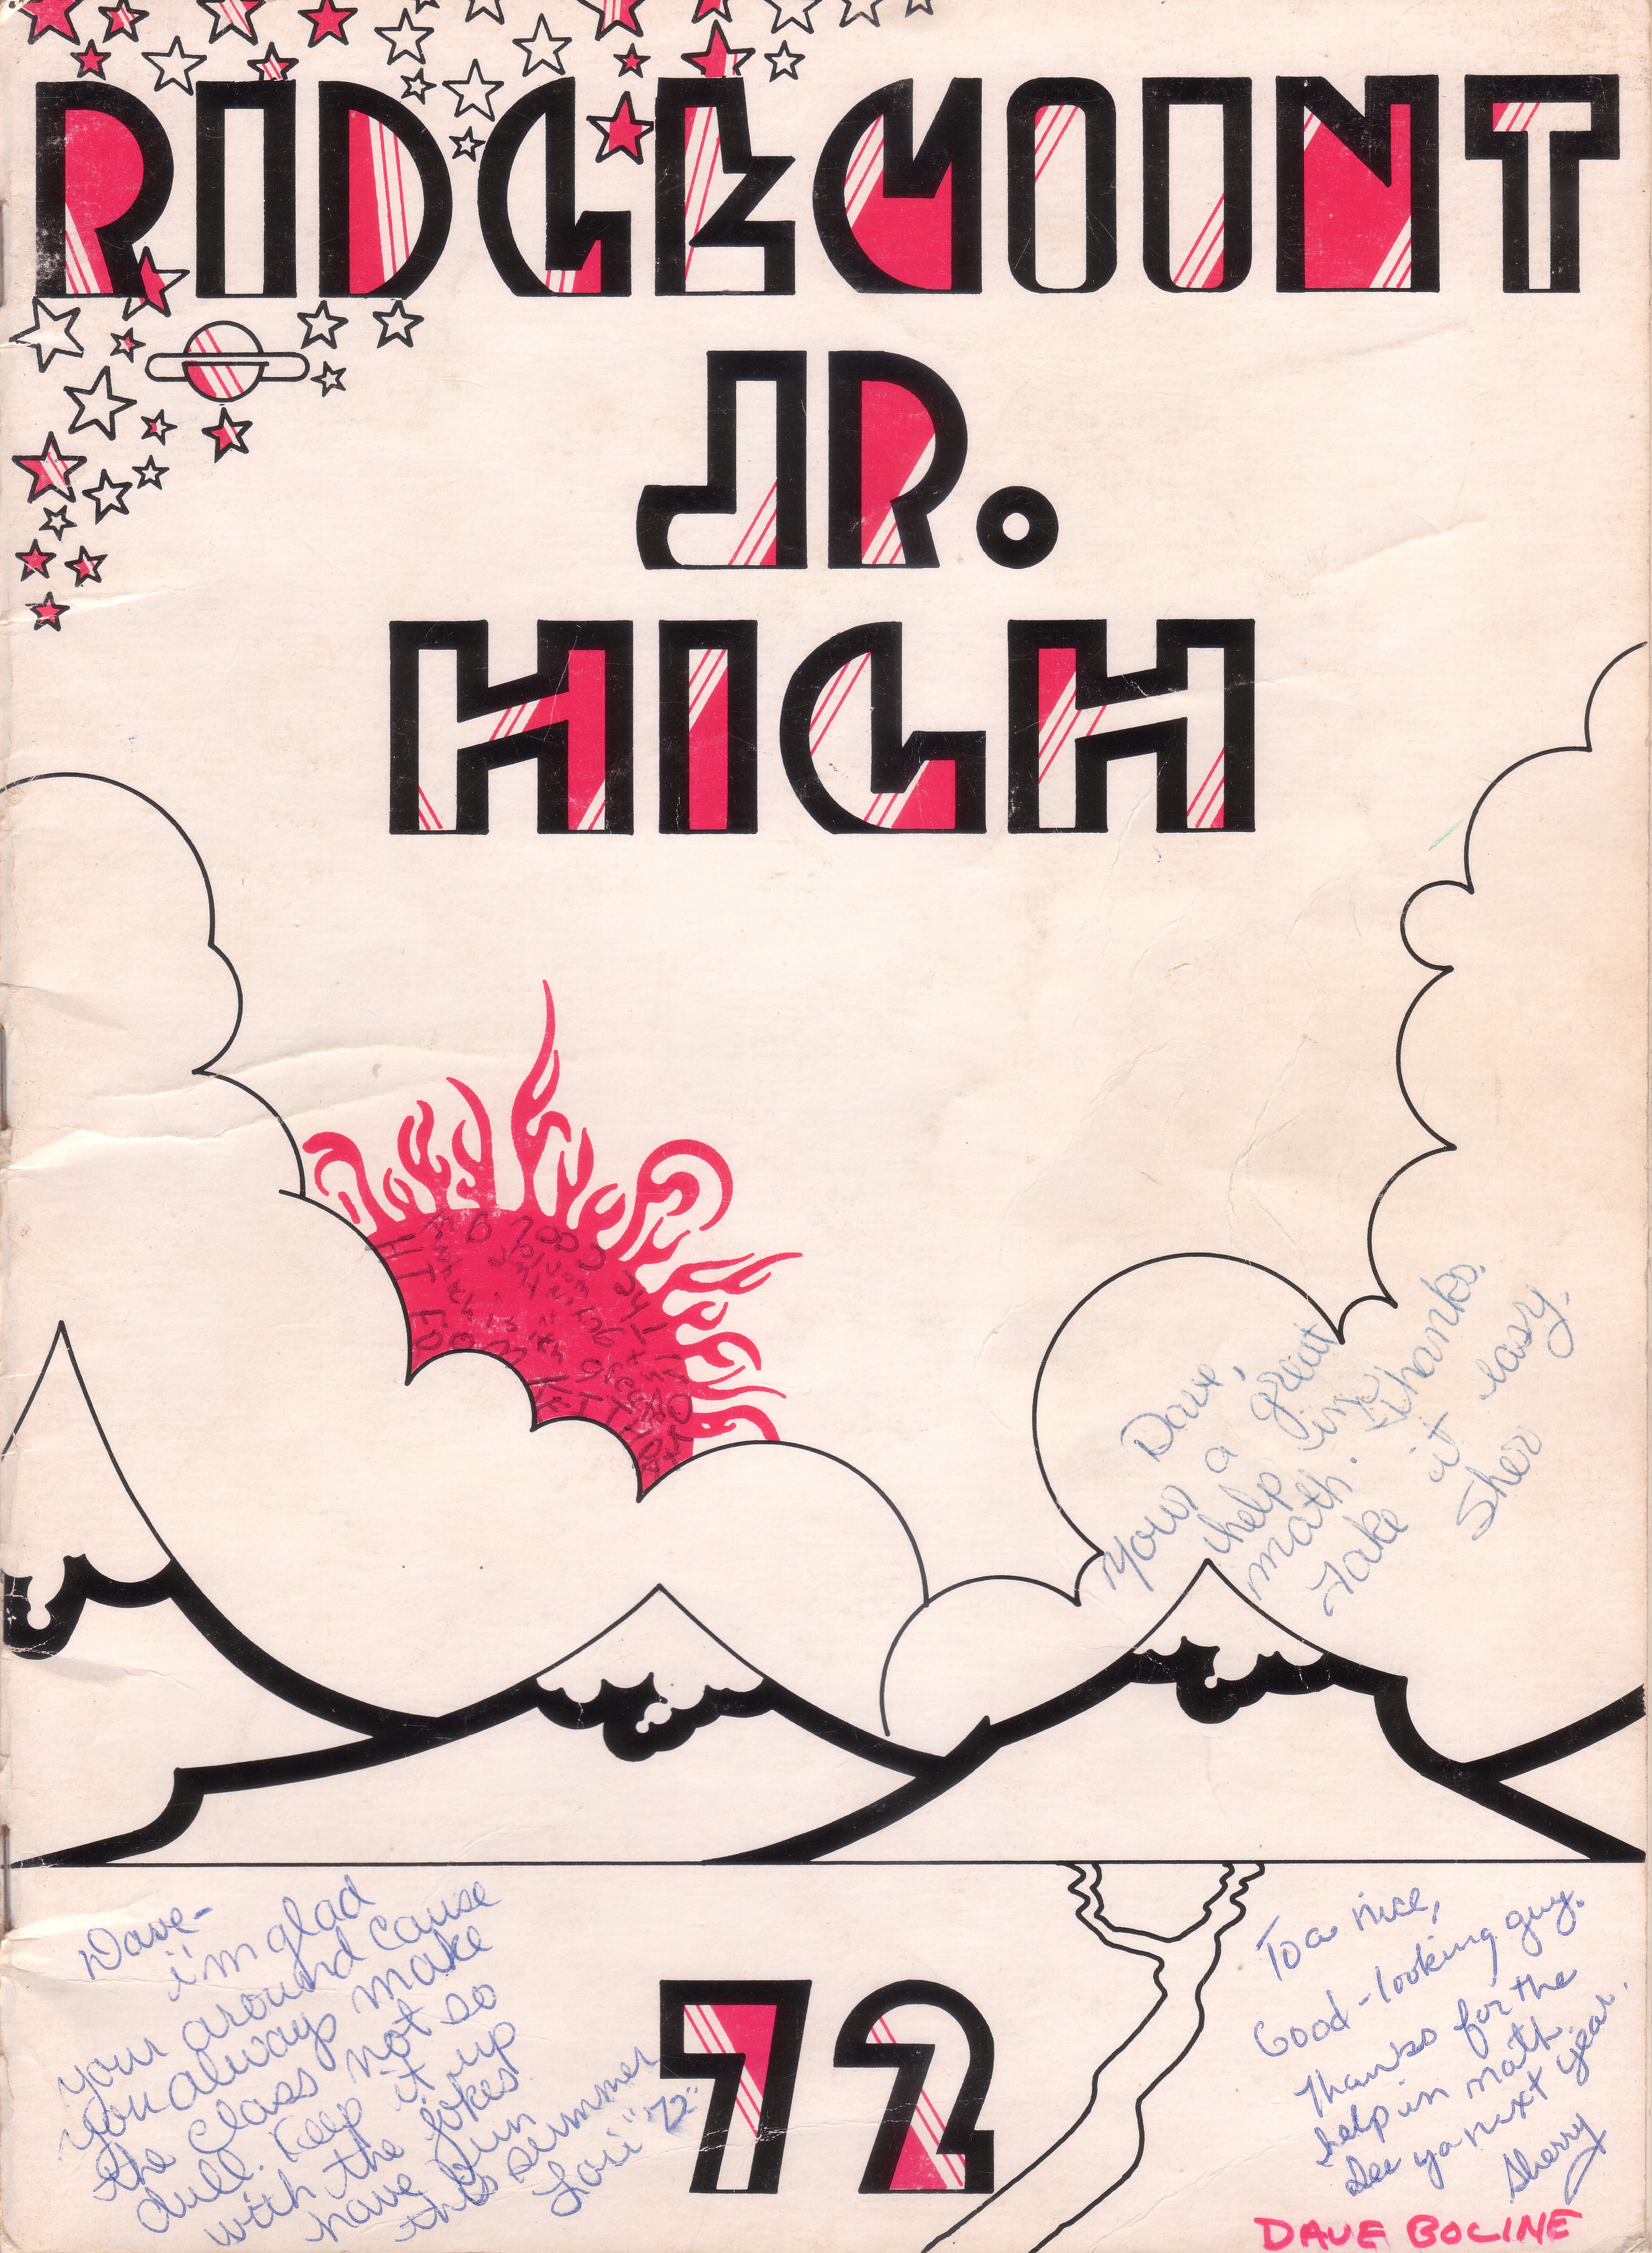 RIDGEMOUNT
JR.
HIGH
Dave,
Your a great
help in
math. Thanks.
Take it easy.
Sher
Dave-
i'm glad
your around cause
you always make
the class not so
dull. Keep it up
with the jokes
have fun
this summer
Lori "72"
72
To a nice,
Good-looking guy.
Thanks for the
help in math.
See ya next year.
Sherry
DAVE BOLINE